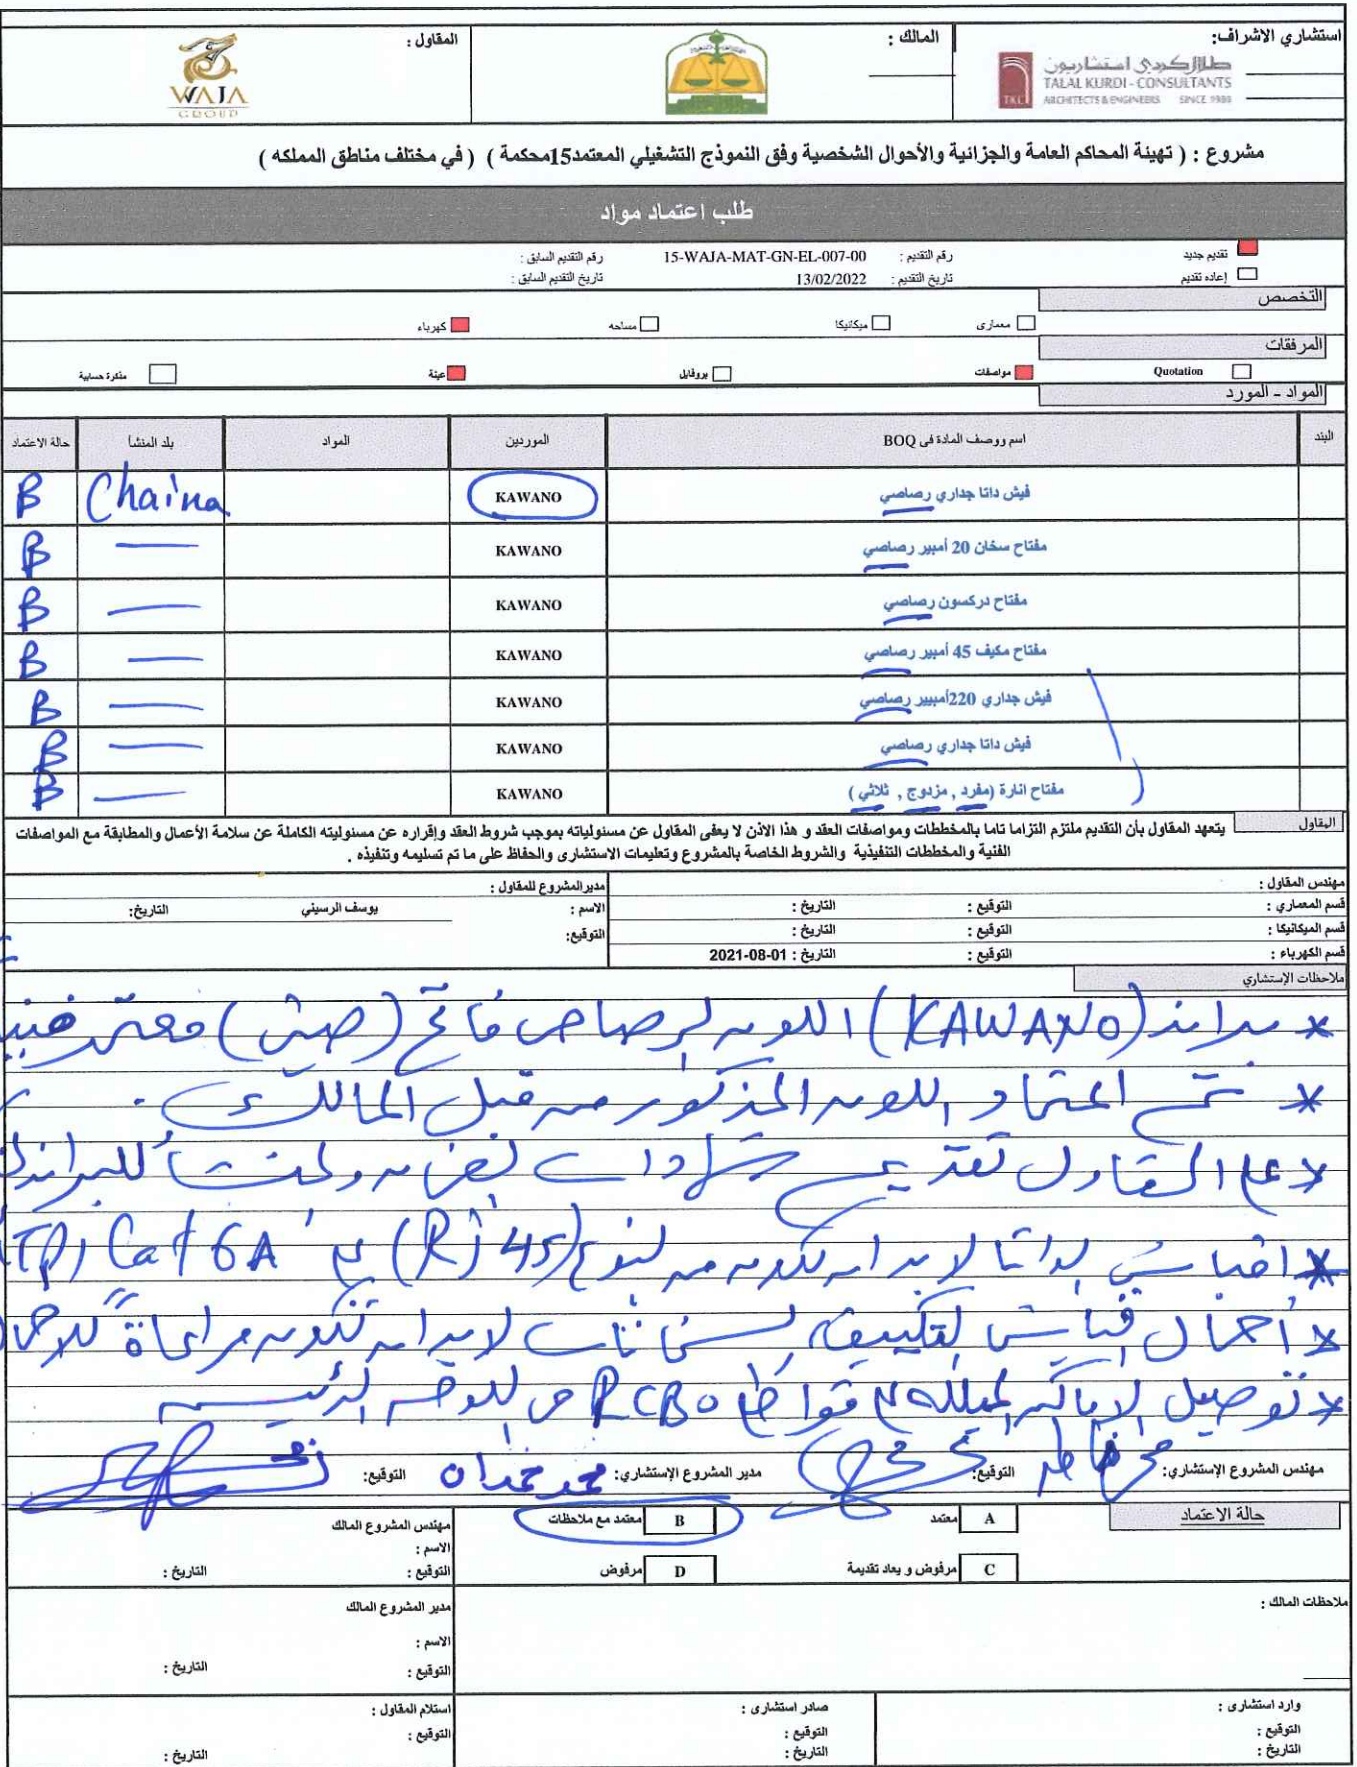 استشاري الاشراف:
المالك :
المقاول :
طلال كردي استشاريون
TALAL KURDI - CONSULTANTS
ARCHITECTS & ENGINEERS SINCE 1988
TKC
WAJA
GROUP
مشروع : ( تهيئة المحاكم العامة والجزائية والأحوال الشخصية وفق النموذج التشغيلي المعتمد15محكمة ) ( في مختلف مناطق المملكه )
طلب اعتماد مواد
تقديم جديد
رقم التقديم : 15-WAJA-MAT-GN-EL-007-00
رقم التقديم السابق :
إعاده تقديم
تاريخ التقديم : 13/02/2022
تاريخ التقديم السابق :
التخصص
معمارى
ميكانيكا
مساحه
كهرباء
المرفقات
Quotation
مواصفات
بروفايل
عينة
مذكرة حسابية
المواد - المورد
البند
اسم ووصف المادة فى BOQ
الموردين
المواد
بلد المنشأ
حالة الاعتماد
فيش داتا جداري رصاصي KAWANO Chaina B
مفتاح سخان 20 أمبير رصاصي KAWANO — B
مفتاح دركسون رصاصي KAWANO — B
مفتاح مكيف 45 أمبير رصاصي KAWANO — B
فيش جداري 220أمبيير رصاصي KAWANO — B
فيش داتا جداري رصاصي KAWANO — B
مفتاح انارة (مفرد , مزدوج , ثلاثي ) KAWANO — B
المقاول
يتعهد المقاول بأن التقديم ملتزم التزاما تاما بالمخططات ومواصفات العقد و هذا الاذن لا يعفى المقاول عن مسنولياته بموجب شروط العقد وإقراره عن مسنوليته الكاملة عن سلامة الأعمال والمطابقة مع المواصفات
الفنية والمخططات التنفيذية والشروط الخاصة بالمشروع وتعليمات الاستشارى والحفاظ على ما تم تسليمه وتنفيذه .
مهندس المقاول :
مديرالمشروع للمقاول :
قسم المعماري : التوقيع : التاريخ :
الاسم : يوسف الرسيني التاريخ:
قسم الميكانيكا : التوقيع : التاريخ :
التوقيع:
قسم الكهرباء : التوقيع : التاريخ : 2021-08-01
ملاحظات الإستشاري
* براند (KAWANO) اللون الرصاصي فاتح
* تم اعتماد اللون المذكور من قبل المالك .
* على المقاول تقديم شهادات الضمان والمنشأ للبراند
* افياش الداتا لابد ان تكون من النوع (RJ45) Cat 6A
* أحمال افياش التكييف السخانات لابد ان تكون مراعاة
* توصيل الاماكن المبللة قواطع RCBO
مهندس المشروع الإستشاري: التوقيع: مدير المشروع الإستشاري: محمد حمدان التوقيع:
حالة الاعتماد
A معتمد
B معتمد مع ملاحظات
C مرفوض و يعاد تقديمة
D مرفوض
مهندس المشروع المالك
الاسم :
التوقيع : التاريخ :
ملاحظات المالك :
مدير المشروع المالك
الاسم :
التوقيع : التاريخ :
وارد استشارى :
التوقيع :
التاريخ :
صادر استشارى :
التوقيع :
التاريخ :
استلام المقاول :
التوقيع :
التاريخ :